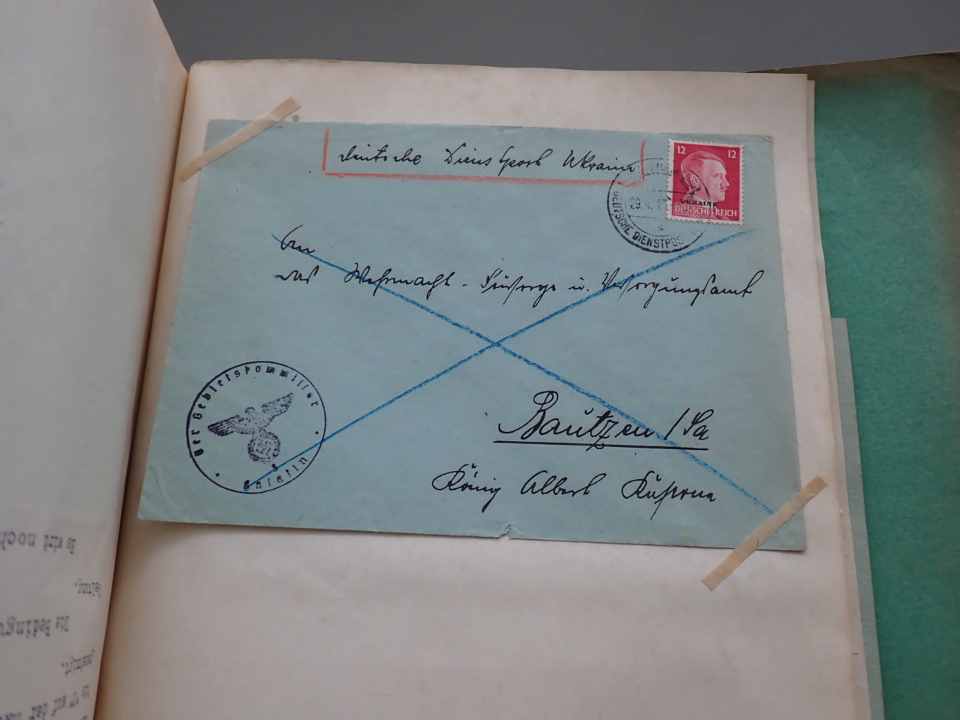 Deutsche Dienstpost Ukraine
12 12
UKRAINE
DEUTSCHES REICH
29.
DEUTSCHE DIENSTPOST
An
das Wehrmacht-Fürsorge u. Versorgungsamt
Bautzen /Sa
König Albert Kaserne
Der Gebietskommissar
Es wird noch
Die Beding